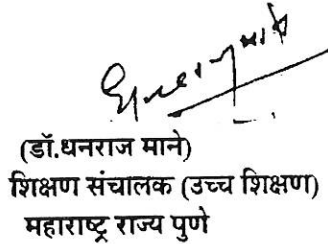 (डॉ.धनराज माने)
शिक्षण संचालक (उच्च शिक्षण)
महाराष्ट्र राज्य पुणे